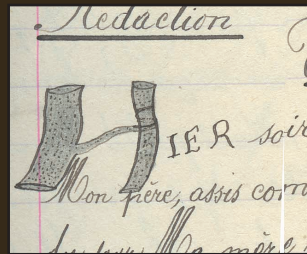 Rédaction
HIER soir
Mon père, assis com
Ma mère,